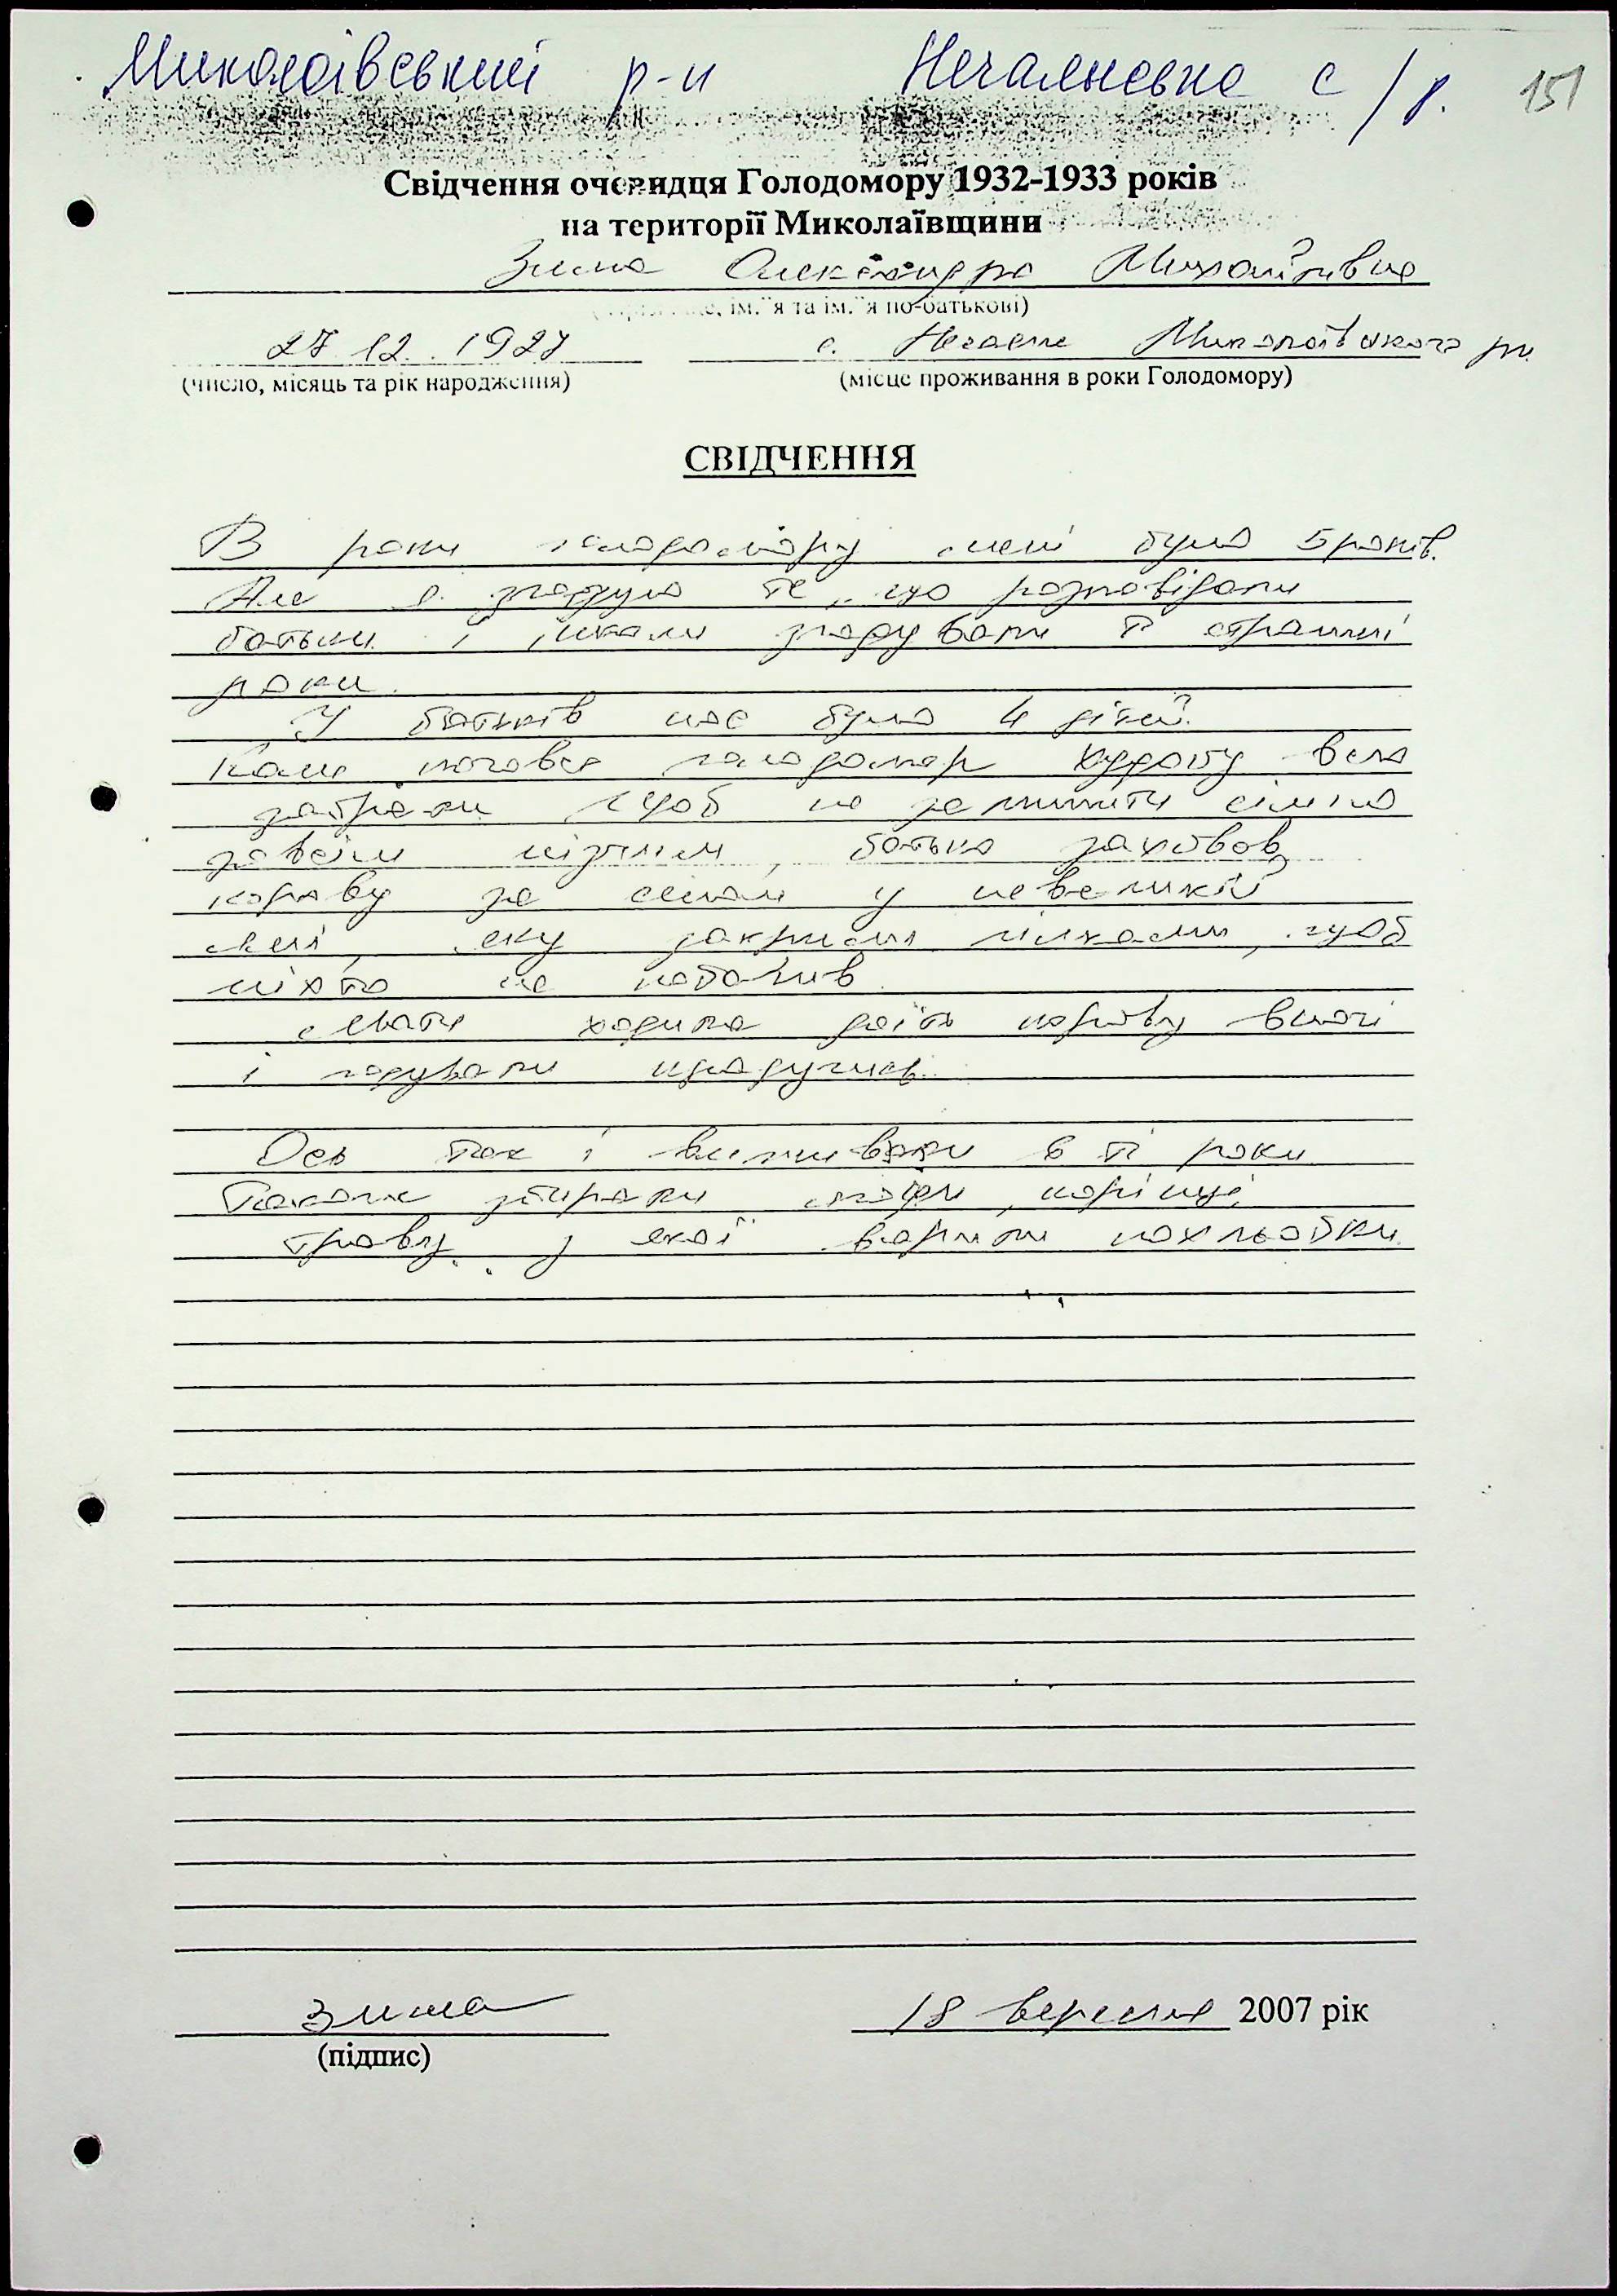 Миколаївський р-н Нечаянська с/р. 151
Свідчення очевидця Голодомору 1932-1933 років
на території Миколаївщини
Зима Олександра Михайлівна
е, ім."я та ім."я по-батькові)
27 12. 1927 с. Нечаяне Миколаївського р-н.
(число, місяць та рік народження) (місце проживання в роки Голодомору)
СВІДЧЕННЯ
В роки голодомору мені було 5 років.
Але я згадую те, що розповідали
батьки і інколи згадували ті страшні
роки.
У батьків нас було 4 дітей.
Коли почався голодомор худобу всю
забрали щоб не залишити сім'ю
завсім нізчим, батько заховав
корову за селом у невеликій
ямі, яку закрили гілками, щоб
ніхто не побачив.
Мати ходила доїть корову вночі
і годували
Ось так і виживали в ті роки
Також збирали корінці,
траву з якої варили похльобки.
Зима 18 вересня 2007 рік
(підпис)